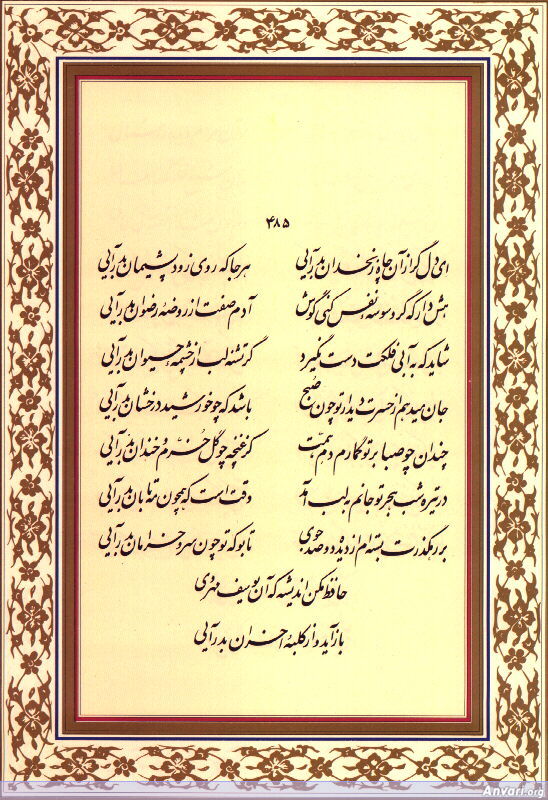 ۴۸۵
ای دل گر از آن چاه زنخدان بدرآیی هر جا که روی زود پشیمان بدرآیی
هش دار که گر وسوسه نفس کنی گوش آدم صفت از روضه رضوان بدرآیی
شاید که به آبی فلکت دست نگیرد گر تشنه لب از چشمه حیوان بدرآیی
جان میدهم از حسرت دیدار تو چون صبح باشد که چو خورشید درخشان بدرآیی
چندان چو صبا بر تو گمارم دم همت کز غنچه چو گل خرم و خندان بدرآیی
در تیره شب هجر تو جانم به لب آمد وقت است که همچون مه تابان بدرآیی
بر رهگذرت بسته‌ام از دیده دو صد جوی تا بو که تو چون سرو خرامان بدرآیی
حافظ مکن اندیشه که آن یوسف مهروی
بازآید و از کلبه احزان بدرآیی
Anvari.org